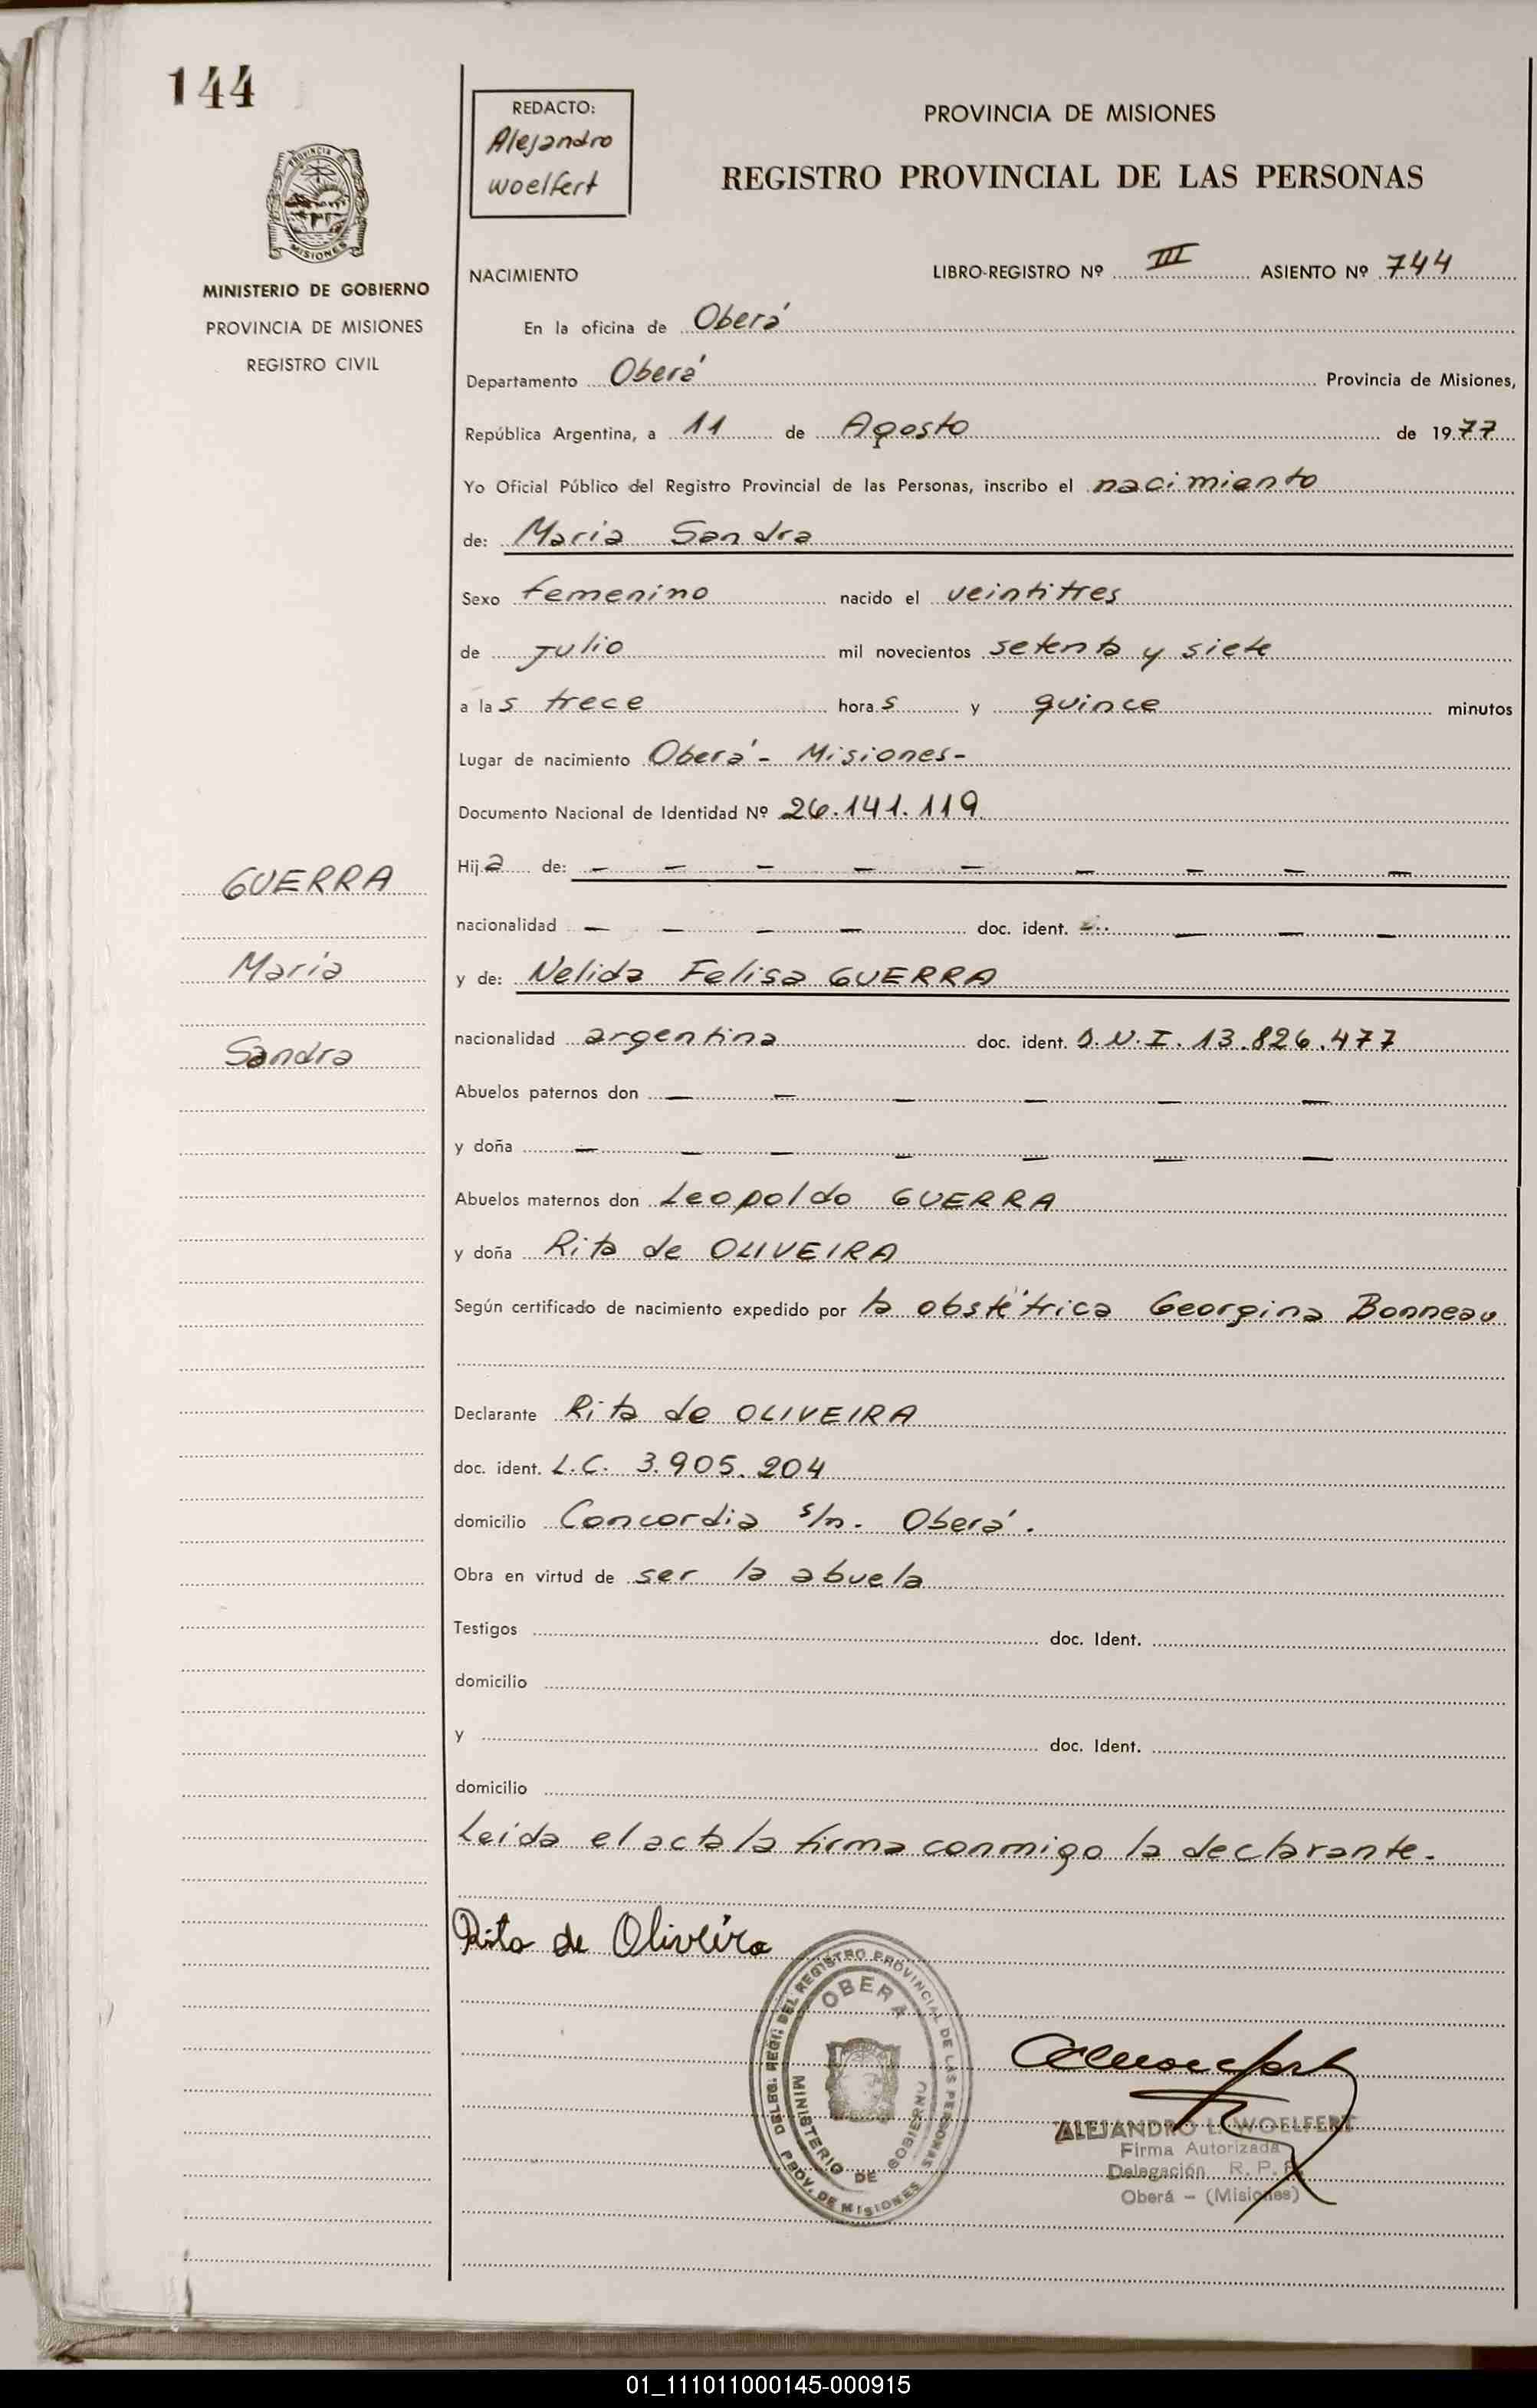 144
REDACTO:
Alejandro
Woelfert
PROVINCIA DE MISIONES
REGISTRO PROVINCIAL DE LAS PERSONAS
PROVINCIA DE
MISIONES
MINISTERIO DE GOBIERNO
PROVINCIA DE MISIONES
REGISTRO CIVIL
NACIMIENTO LIBRO-REGISTRO Nº III ASIENTO Nº 744
En la oficina de Oberá
Departamento Oberá Provincia de Misiones,
República Argentina, a 11 de Agosto de 1977
Yo Oficial Público del Registro Provincial de las Personas, inscribo el nacimiento
de: Maria Sandra
Sexo femenino nacido el veintitres
de julio mil novecientos setenta y siete
a las trece horas y quince minutos
Lugar de nacimiento Oberá - Misiones -
Documento Nacional de Identidad Nº 26.141.119
Hija de: — — — — — — — — —
nacionalidad — — — — doc. ident. — — —
y de: Nelida Felisa GUERRA
nacionalidad argentina doc. ident. D.N.I. 13.826.477
Abuelos paternos don — — — — — —
y doña — — — — — — —
Abuelos maternos don Leopoldo GUERRA
y doña Rita de OLIVEIRA
Según certificado de nacimiento expedido por la obstétrica Georgina Bonneau
Declarante Rita de OLIVEIRA
doc. ident. L.C. 3.905.204
domicilio Concordia s/n. Oberá.
Obra en virtud de ser la abuela
Testigos doc. Ident.
domicilio
y doc. Ident.
domicilio
Leída el acta la firma conmigo la declarante.
GUERRA
Maria
Sandra
Rita de Oliveira
DELEG. REGI. DEL REGISTRO PROVINCIAL DE LAS PERSONAS
OBERA
MINISTERIO DE GOBIERNO
PROV. DE MISIONES
ALEJANDRO L. WOELFERT
Firma Autorizada
Delegación R. P. P.
Oberá - (Misiones)
01_111011000145-000915